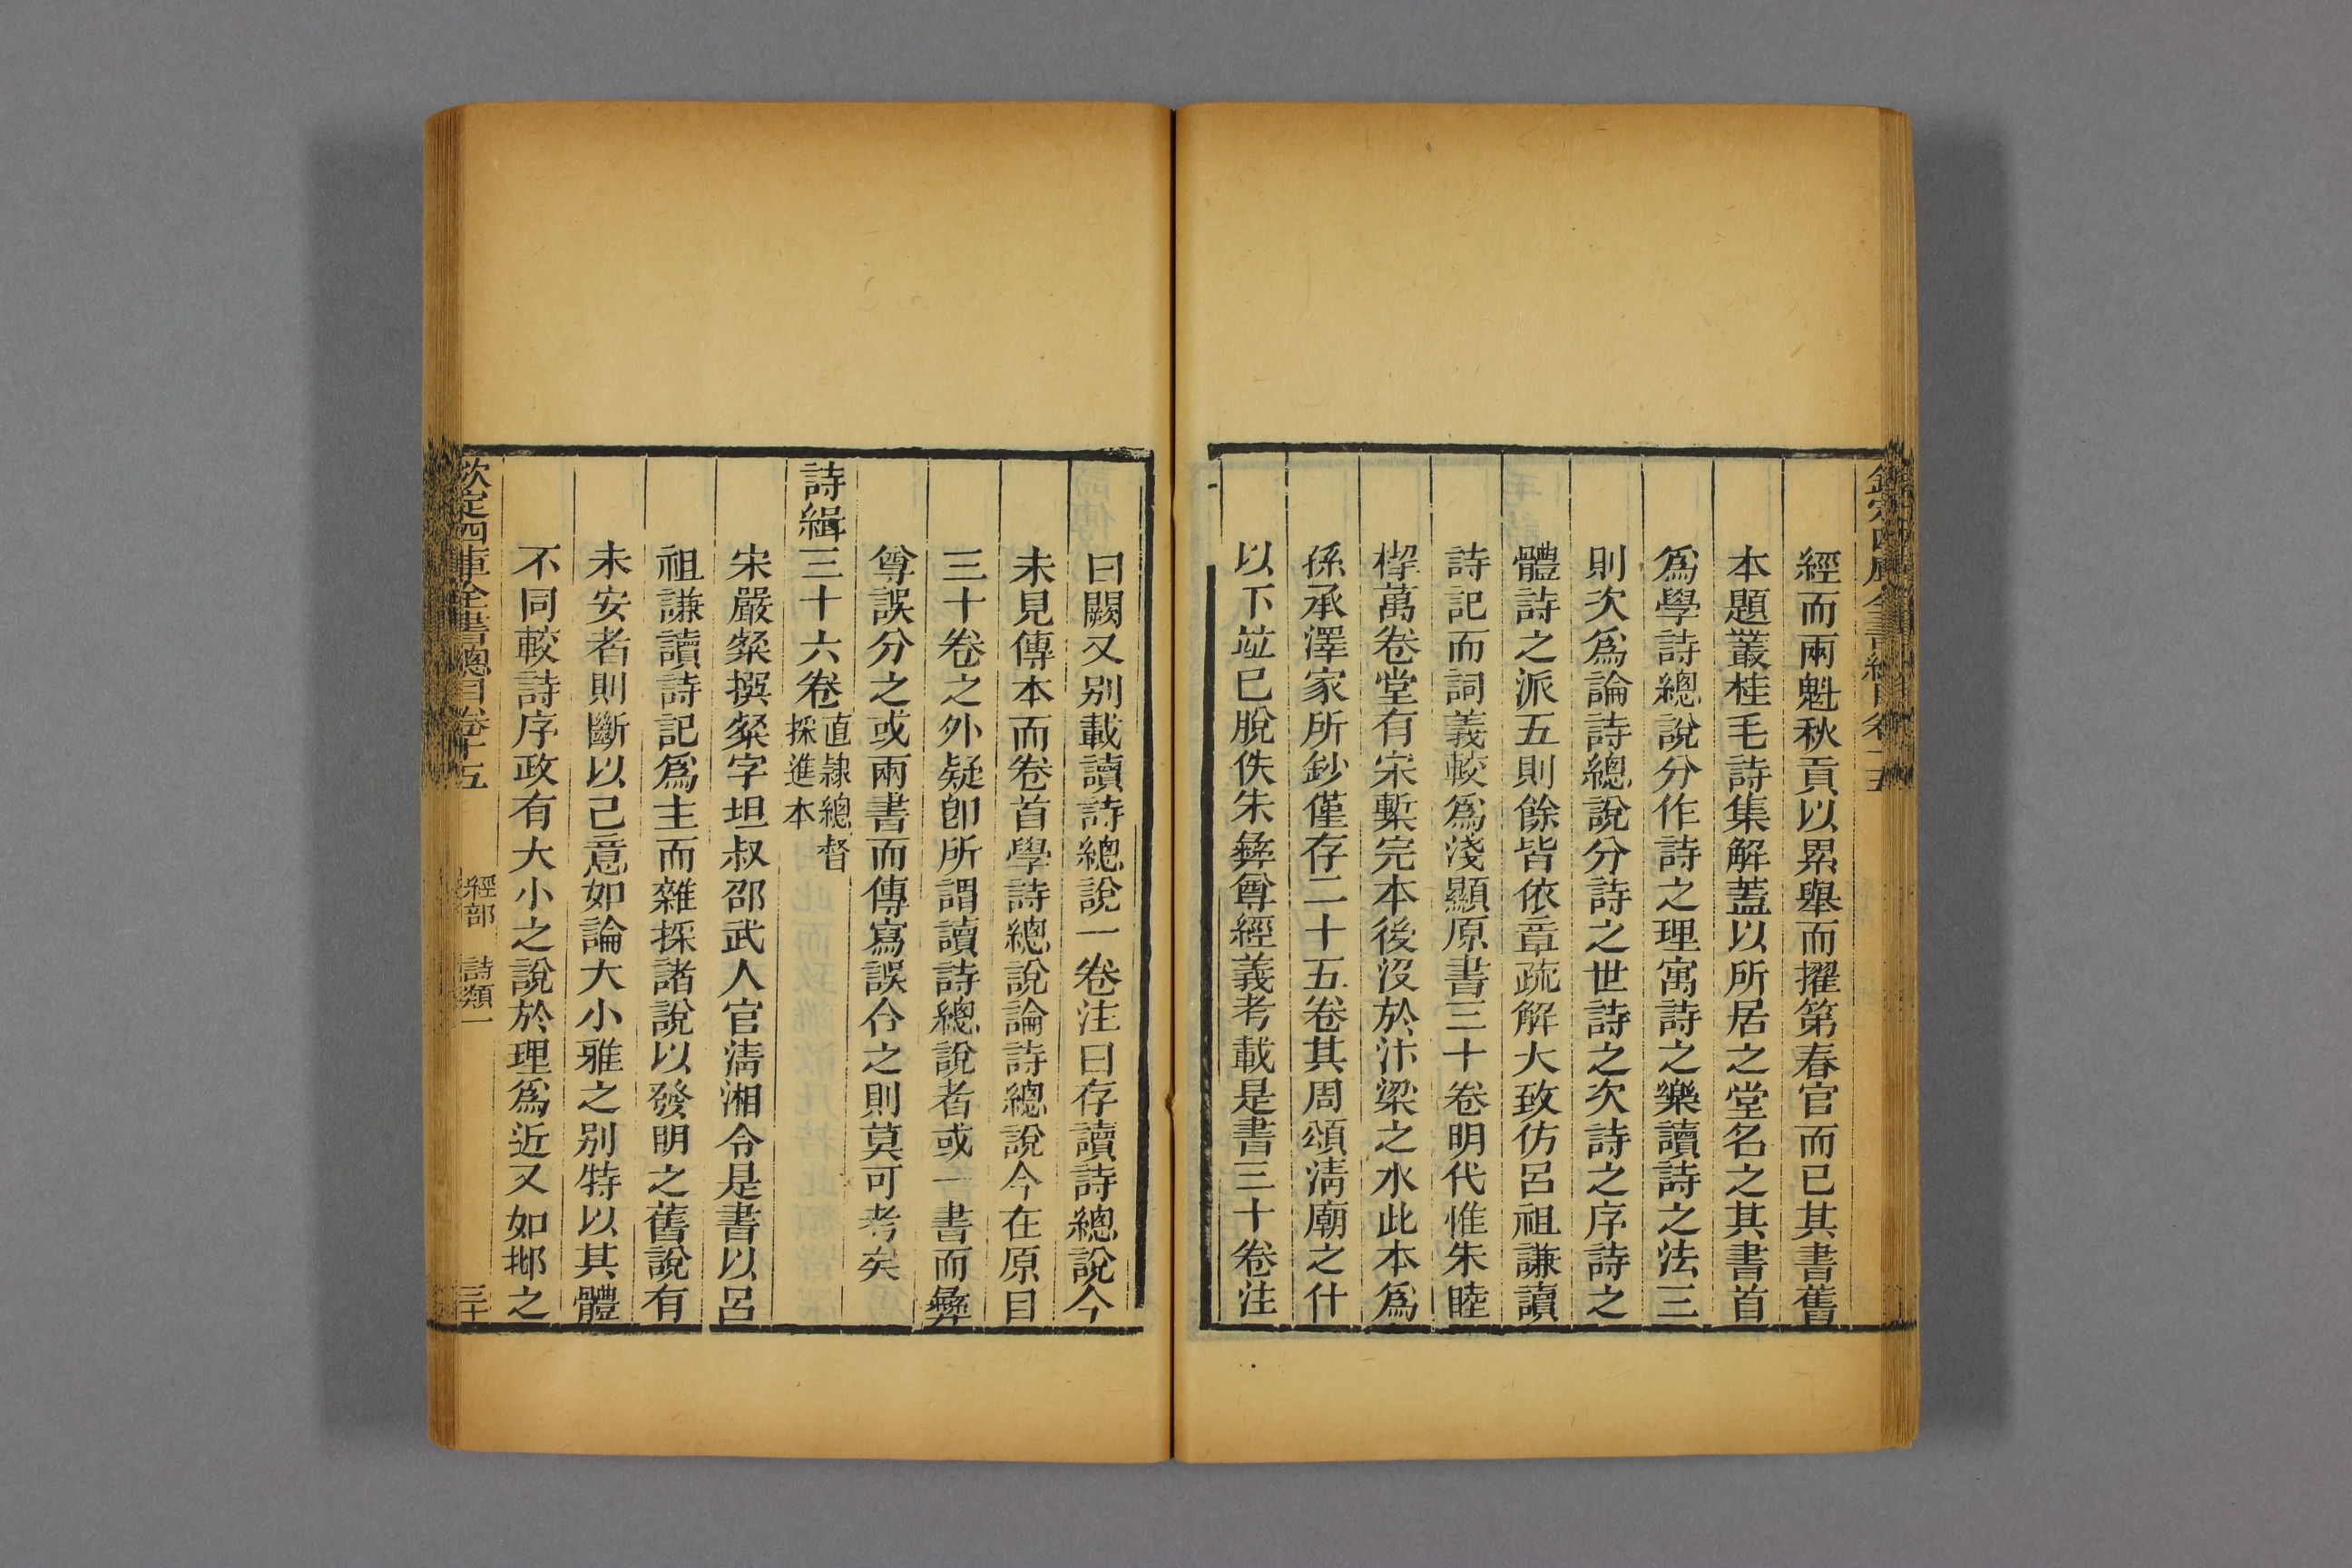 經而兩魁秋貢以累舉而擢第春官而已其書舊
本題叢桂毛詩集解蓋以所居之堂名之其書首
爲學詩總說分作詩之理寓詩之樂讀詩之法三
則次爲論詩總說分詩之世詩之次詩之序詩之
體詩之派五則餘皆依章疏解大致仿呂祖謙讀
詩記而詞義較爲淺顯原書三十卷明代惟朱睦
㮮萬卷堂有宋槧完本後沒於汴梁之水此本爲
孫承澤家所鈔僅存二十五卷其周頌淸廟之什
以下竝已脫佚朱彝尊經義考載是書三十卷注
曰闕又别載讀詩總說一卷注曰存讀詩總說今
未見傳本而卷首學詩總說論詩總說今在原目
三十卷之外疑卽所謂讀詩總說者或一書而彝
尊誤分之或兩書而傳寫誤合之則莫可考矣
詩緝三十六卷直隸總督採進本
宋嚴粲撰粲字坦叔邵武人官淸湘令是書以呂
祖謙讀詩記爲主而雜採諸說以發明之舊說有
未安者則斷以己意如論大小雅之别特以其體
不同較詩序政有大小之說於理爲近又如邶之
欽定四庫全書總目卷十五 經部 詩類一 三十